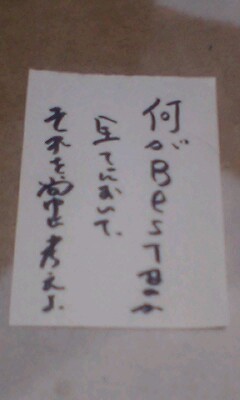 何がBesTなのか
全てにおいて、
それを常に考えろ.